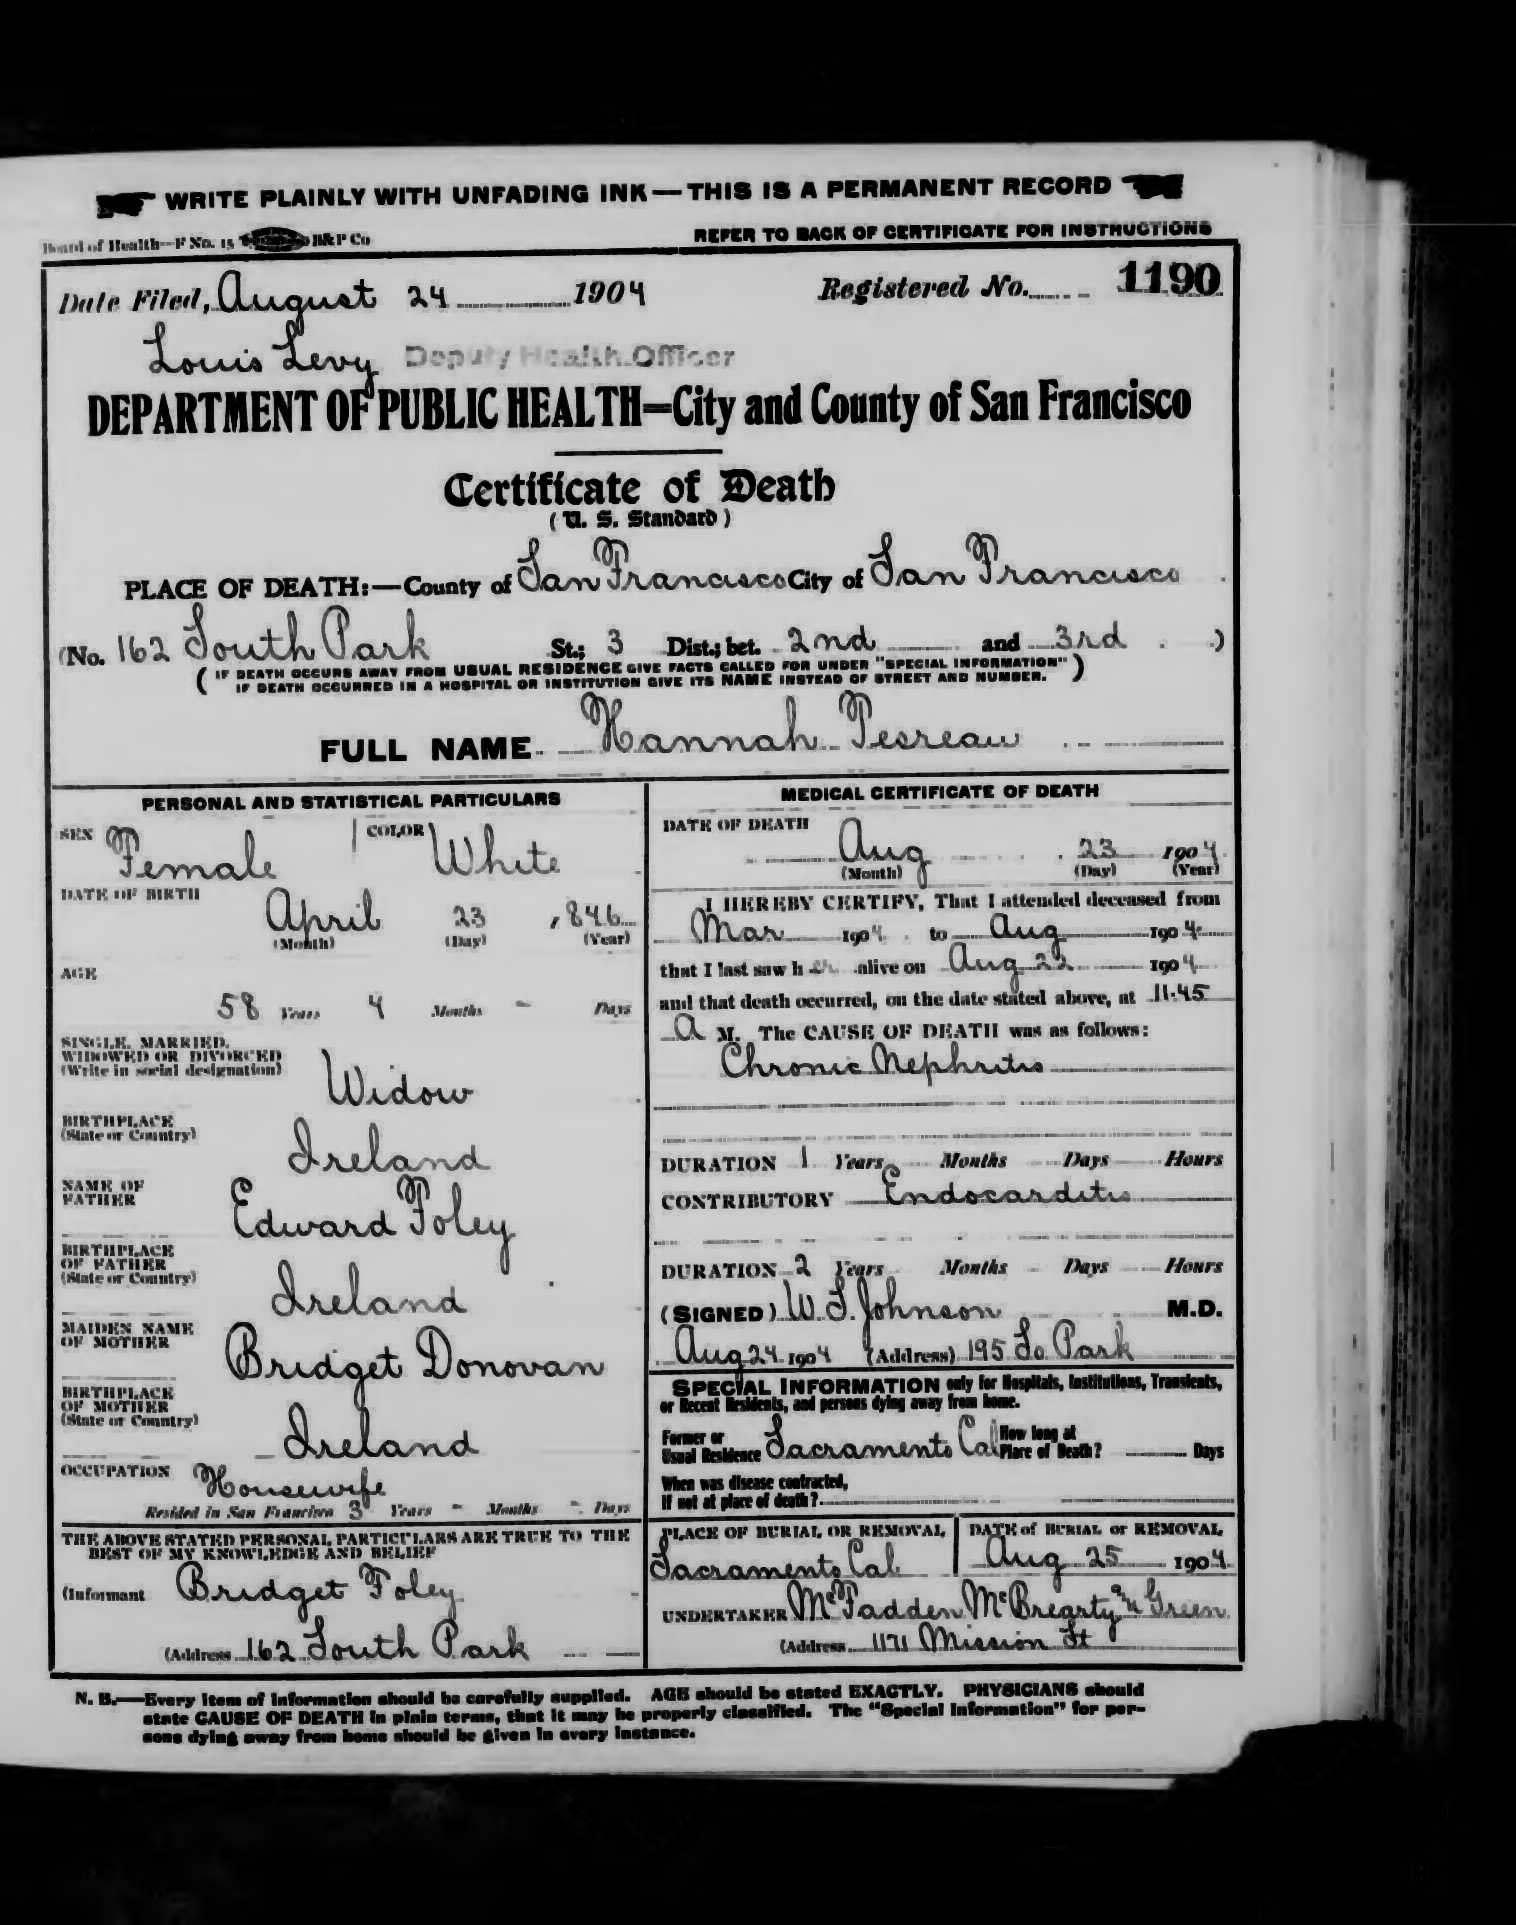 WRITE PLAINLY WITH UNFADING INK — THIS IS A PERMANENT RECORD
Board of Health—F No. 15 H&P Co
REFER TO BACK OF CERTIFICATE FOR INSTRUCTIONS
Date Filed, August 24 1904 Registered No. 1190
Louis Levy Deputy Health Officer
DEPARTMENT OF PUBLIC HEALTH=City and County of San Francisco
Certificate of Death
(U. S. Standard)
PLACE OF DEATH:—County of San Francisco City of San Francisco
(No. 162 South Park St.; 3 Dist.; bet. 2nd and 3rd )
( IF DEATH OCCURS AWAY FROM USUAL RESIDENCE GIVE FACTS CALLED FOR UNDER "SPECIAL INFORMATION" )
IF DEATH OCCURRED IN A HOSPITAL OR INSTITUTION GIVE ITS NAME INSTEAD OF STREET AND NUMBER.
FULL NAME Hannah Tesreau
PERSONAL AND STATISTICAL PARTICULARS
SEX Female COLOR White
DATE OF BIRTH
April 23 , 846
(Month) (Day) (Year)
AGE
58 Years 4 Months - Days
SINGLE, MARRIED,
WIDOWED OR DIVORCED
(Write in social designation)
Widow
BIRTHPLACE
(State or Country)
Ireland
NAME OF
FATHER
Edward Foley
BIRTHPLACE
OF FATHER
(State or Country)
Ireland
MAIDEN NAME
OF MOTHER
Bridget Donovan
BIRTHPLACE
OF MOTHER
(State or Country)
Ireland
OCCUPATION Housewife
Resided in San Francisco 3 Years - Months - Days
THE ABOVE STATED PERSONAL PARTICULARS ARE TRUE TO THE
BEST OF MY KNOWLEDGE AND BELIEF
(Informant Bridget Foley
(Address 162 South Park
MEDICAL CERTIFICATE OF DEATH
DATE OF DEATH
Aug 23 1904
(Month) (Day) (Year)
I HEREBY CERTIFY, That I attended deceased from
Mar 1904 to Aug 1904
that I last saw h er alive on Aug 22 1904
and that death occurred, on the date stated above, at 11.45
A M. The CAUSE OF DEATH was as follows:
Chronic Nephritis
DURATION 1 Years Months Days Hours
CONTRIBUTORY Endocarditis
DURATION 2 Years Months Days Hours
(SIGNED) W. S. Johnson M.D.
Aug 24 1904 (Address) 195 So Park
SPECIAL INFORMATION only for Hospitals, Institutions, Transients,
or Recent Residents, and persons dying away from home.
Former or
Usual Residence Sacramento Cal
How long at
Place of Death? Days
When was disease contracted,
If not at place of death?
PLACE OF BURIAL OR REMOVAL
Sacramento Cal
DATE of BURIAL or REMOVAL
Aug 25 1904
UNDERTAKER McFadden McBrearty & Green
(Address 1171 Mission St
N. B.—Every item of information should be carefully supplied. AGE should be stated EXACTLY. PHYSICIANS should
state CAUSE OF DEATH in plain terms, that it may be properly classified. The "Special Information" for per-
sons dying away from home should be given in every instance.